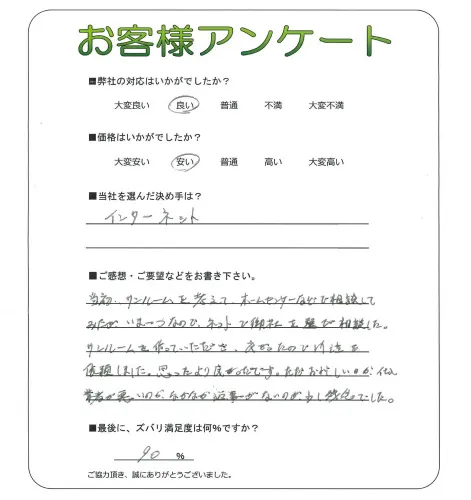 お客様アンケート
■弊社の対応はいかがでしたか?
大変良い 良い 普通 不満 大変不満
■価格はいかがでしたか?
大変安い 安い 普通 高い 大変高い
■当社を選んだ決め手は?
インターネット
■ご感想・ご要望などをお書き下さい。
当初、サンルームを考えて、ホームセンターなどで相談して
みたがいま一つなので、ネットで御社を選び相談した。
サンルームを作っていただき、良かったので外注を
依頼しました。思ったより良かったです。ただおかしいのが、
業者が悪いのか、なかなか返事がないのが少し残念でした。
■最後に、ズバリ満足度は何%ですか?
90 %
ご協力頂き、誠にありがとうございました。